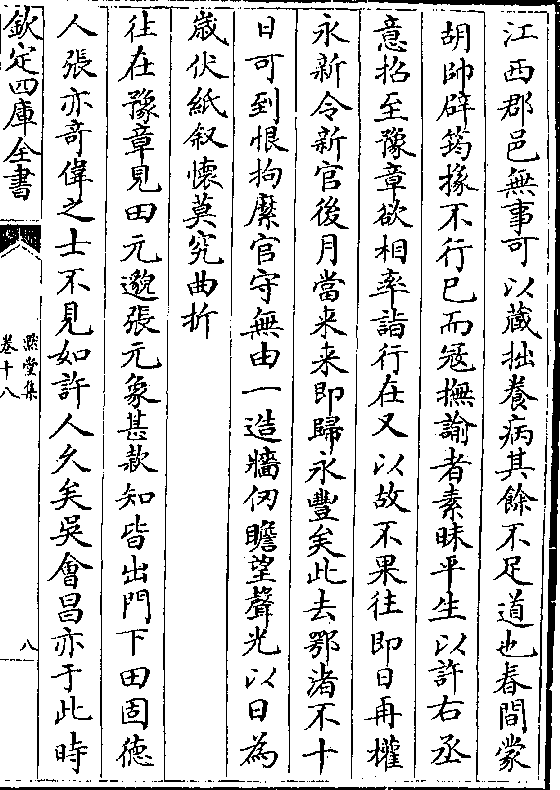 江西郡邑無事可以藏拙養病其餘不足道也春間蒙
胡帥辟筠掾不行已而冦撫諭者素昧平生以許右丞
意招至豫章欲相率詣行在又以故不果往即日再權
永新令新官後月當来来即歸永豐矣此去鄂渚不十
日可到恨拘縻官守無由一造牆仞瞻望聲光以日為
嵗伏紙叙懐莫究曲折
往在豫章見田元邈張元象甚款知皆出門下田固徳
人張亦竒偉之士不見如許人久矣吳會昌亦于此時
欽定四庫全書
㸃堂集
卷十八
八